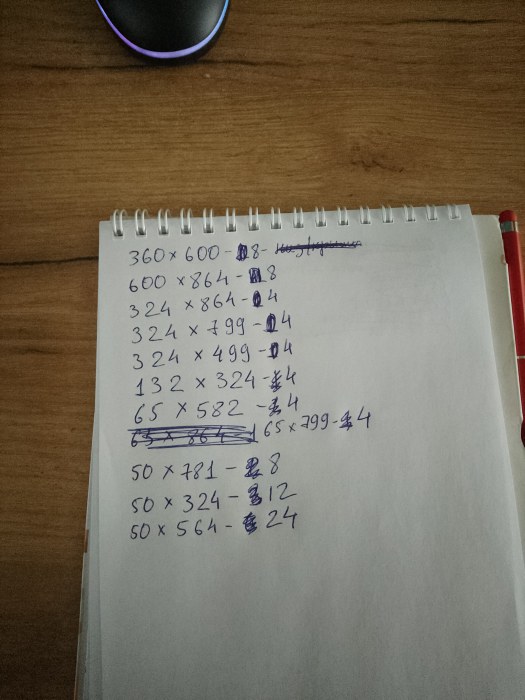 360 x 600 - 8 -
600 x 864 - 8
324 x 864 - 4
324 x 799 - 4
324 x 499 - 4
132 x 324 - 4
65 x 582 - 4
65 x 864 65 x 799 - 4
50 x 781 - 8
50 x 324 - 12
50 x 564 - 24